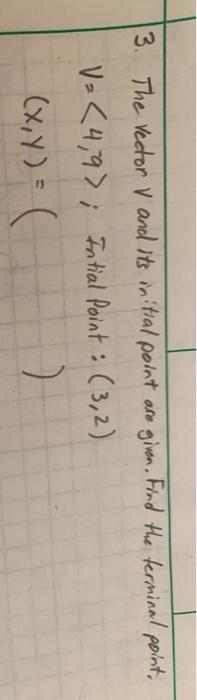 3. The vector v and its initial point are given. Find the terminal point.
V = <4,9> ; Intial Point : (3,2)
(x,y) = (          )